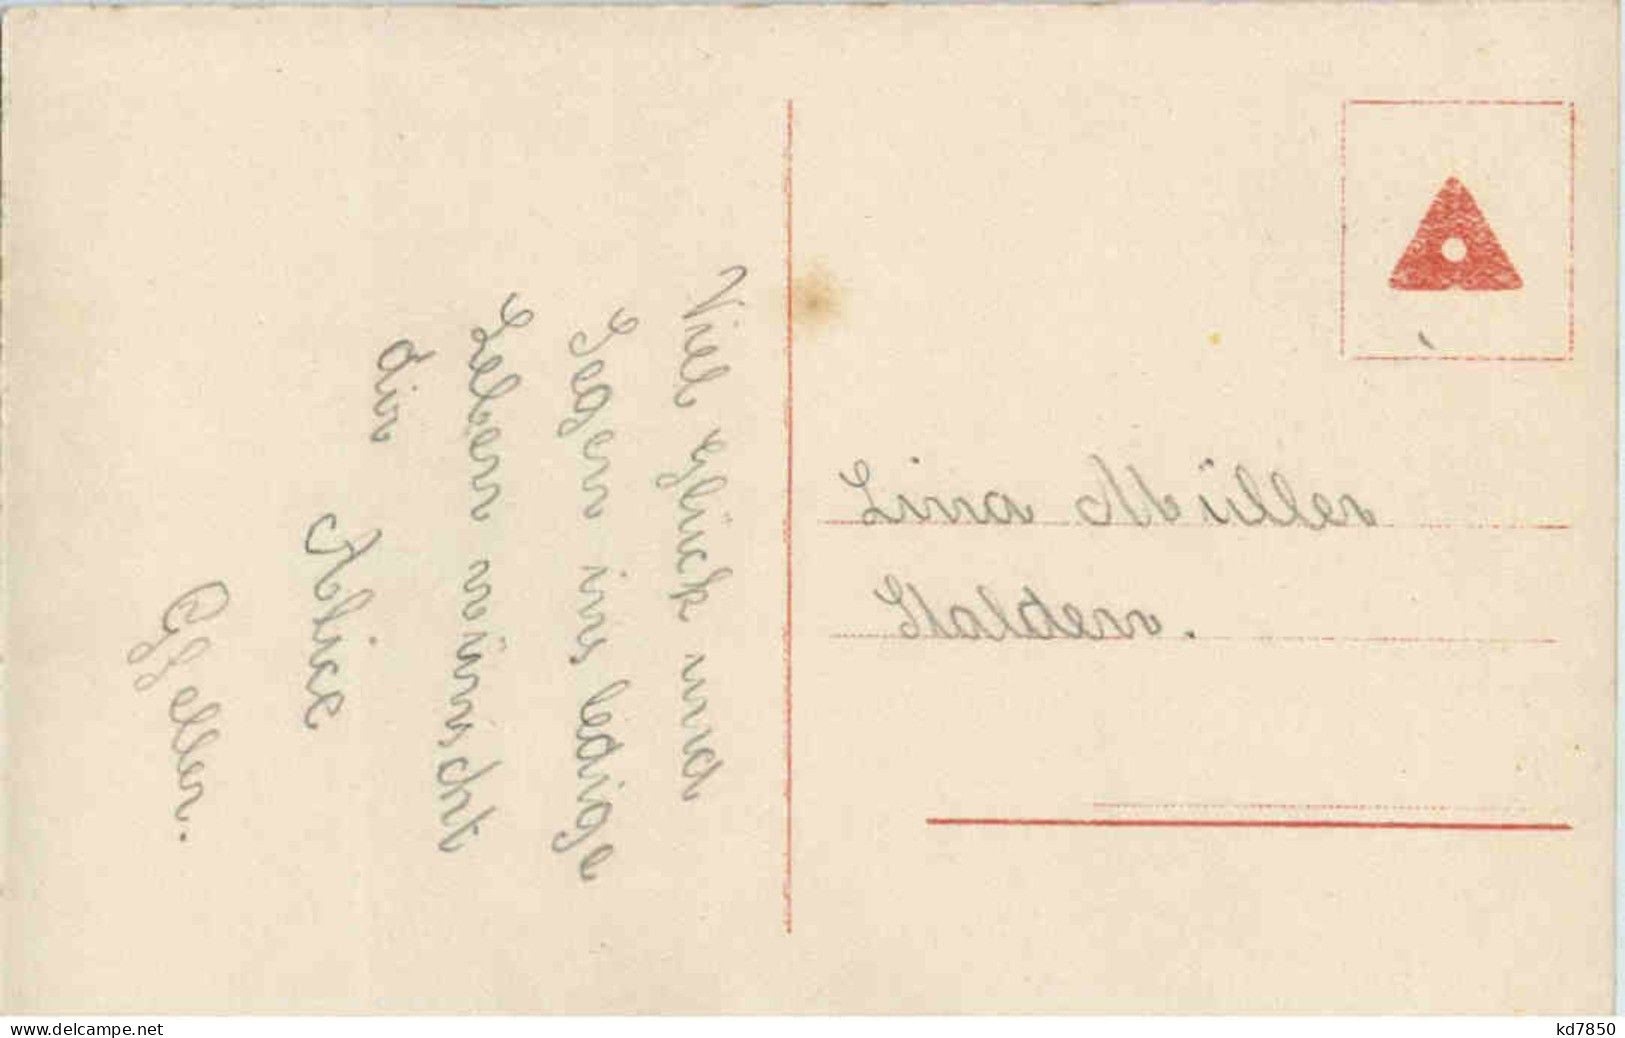 Viel Glück und
Segen ins ledige
Leben wünscht
dir
Alice
Gfeller.
Lina Müller
Stalden.
www.delcampe.net
kd7850